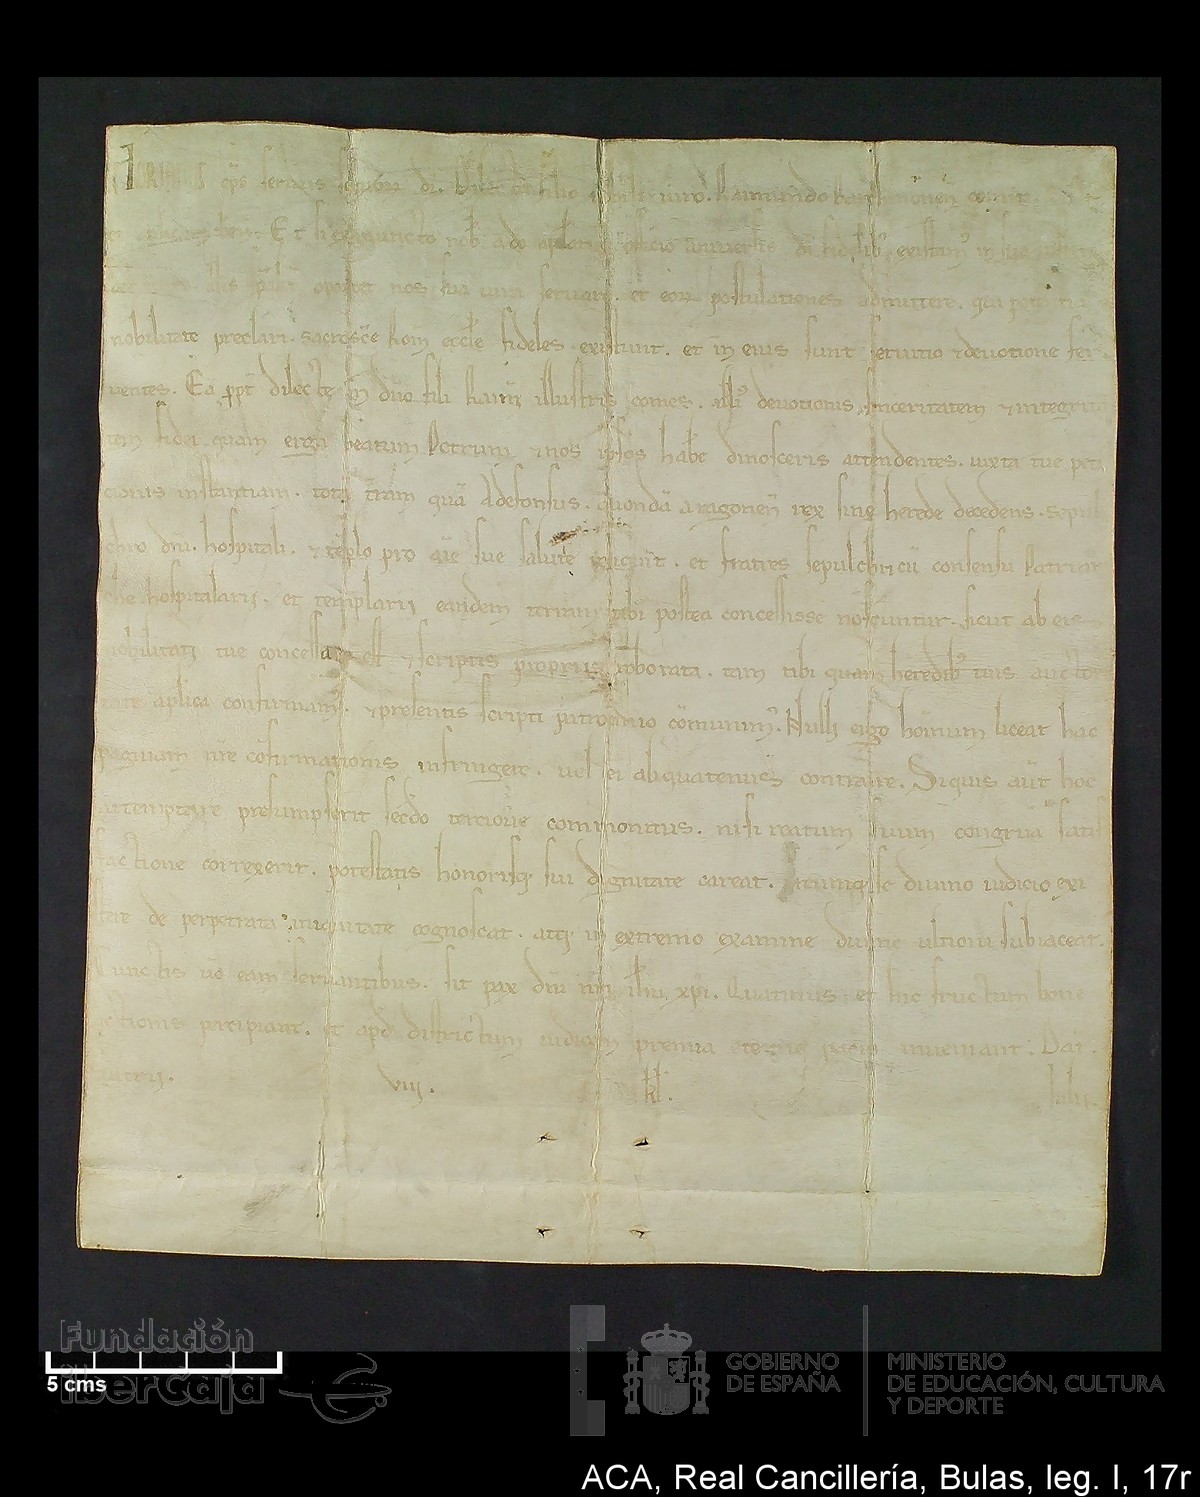 eps servus servorum dī. Dilecto filio nobili viro. Raimundo barchinonen̄ comiti
bened̄. Et si ex iniuncto nob̄ a dō aplatus officio universis dī fidelib; existam; in sua iustitia
oportet nos sua iura servare. et eorū postulationes admittere. qui
nobilitate preclari. sacrosc̄e Rom̄ eccl̄e fideles existunt. et in eius sunt servitio ⁊ devotione fer
ventes. Ea ꝓpt̄ dilecte in dn̄o fili Raim̄ illustris comes. devotionis sinceritatem ⁊ integrita
tem fidei quam erga beatum Petrum ⁊ nos ipsos hab̄e dinosceris attendentes. iuxta tue peti
cionis instantiam. totā t̄ram quā Adefonsus. quondā aragonen̄ rex sine herede decedens. sepul
chro dn̄i. hospitali. ⁊ tēplo pro aīe sue salute reliquit. et fratres sepulchri cū consensu Patriar
che hospitalarii. et templarii eandem terram tibi postea concessisse noscuntur. sicut ab eis
nobilitati tue concessa est ⁊ scriptis propriis roborata. tam tibi quam heredib; tuis auctori
tate aplica confirmam;. ⁊ presentis scripti patrocinio cōmunim;. Nulli ergo hominum liceat hac
paginam nr̄e cōfirmationis infringere. vel ei aliquatenus contraire. Siquis aūt hoc
attemptare presumpserit secdō tertiove commonitus. nisi reatum suum congrua satis
factione correxerit. potestatis honorisq; sui dignitate careat. reumq; se divino iudicio exi
stere de perpetrata iniquitate cognoscat. atq; in extremo examine divine ultioni subiaceat.
Cunctis v̄o eam servantibus. sit pax dn̄i nr̄i ih̄u xp̄i. Quatinus et hic fructum bone
actionis percipiant. et apd̄ districtum iudicem premia eterne pacis inveniant. Dat.
viii. kl̄. Iulii.
5 cms
Fundación
iberCaja
GOBIERNO
DE ESPAÑA
MINISTERIO
DE EDUCACIÓN, CULTURA
Y DEPORTE
ACA, Real Cancillería, Bulas, leg. I, 17r